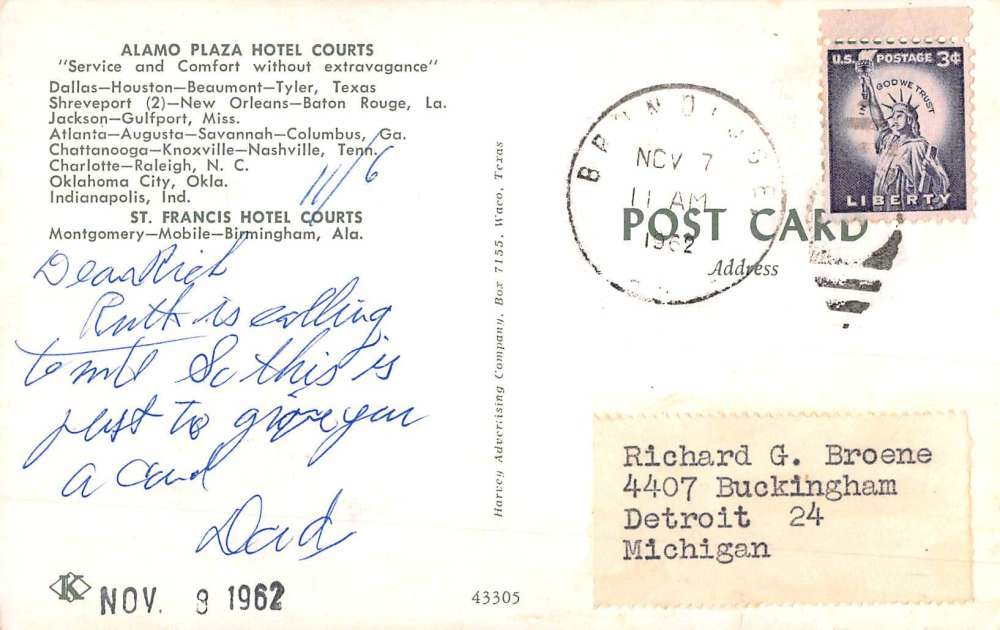 ALAMO PLAZA HOTEL COURTS
"Service and Comfort without extravagance"
Dallas—Houston—Beaumont—Tyler, Texas
Shreveport (2)—New Orleans—Baton Rouge, La.
Jackson—Gulfport, Miss.
Atlanta—Augusta—Savannah—Columbus, Ga.
Chattanooga—Knoxville—Nashville, Tenn.
Charlotte—Raleigh, N. C.
Oklahoma City, Okla.
Indianapolis, Ind.
ST. FRANCIS HOTEL COURTS
Montgomery—Mobile—Birmingham, Ala.
11/6
Dear Rich
Ruth is calling
So this is
just to give you
a card
Dad
NOV. 8 1962
K
43305
Harvey Advertising Company, Box 7155, Waco, Texas
NOV 7
11 AM
1962
U.S. POSTAGE 3¢
IN GOD WE TRUST
LIBERTY
POST CARD
Address
Richard G. Broene
4407 Buckingham
Detroit 24
Michigan